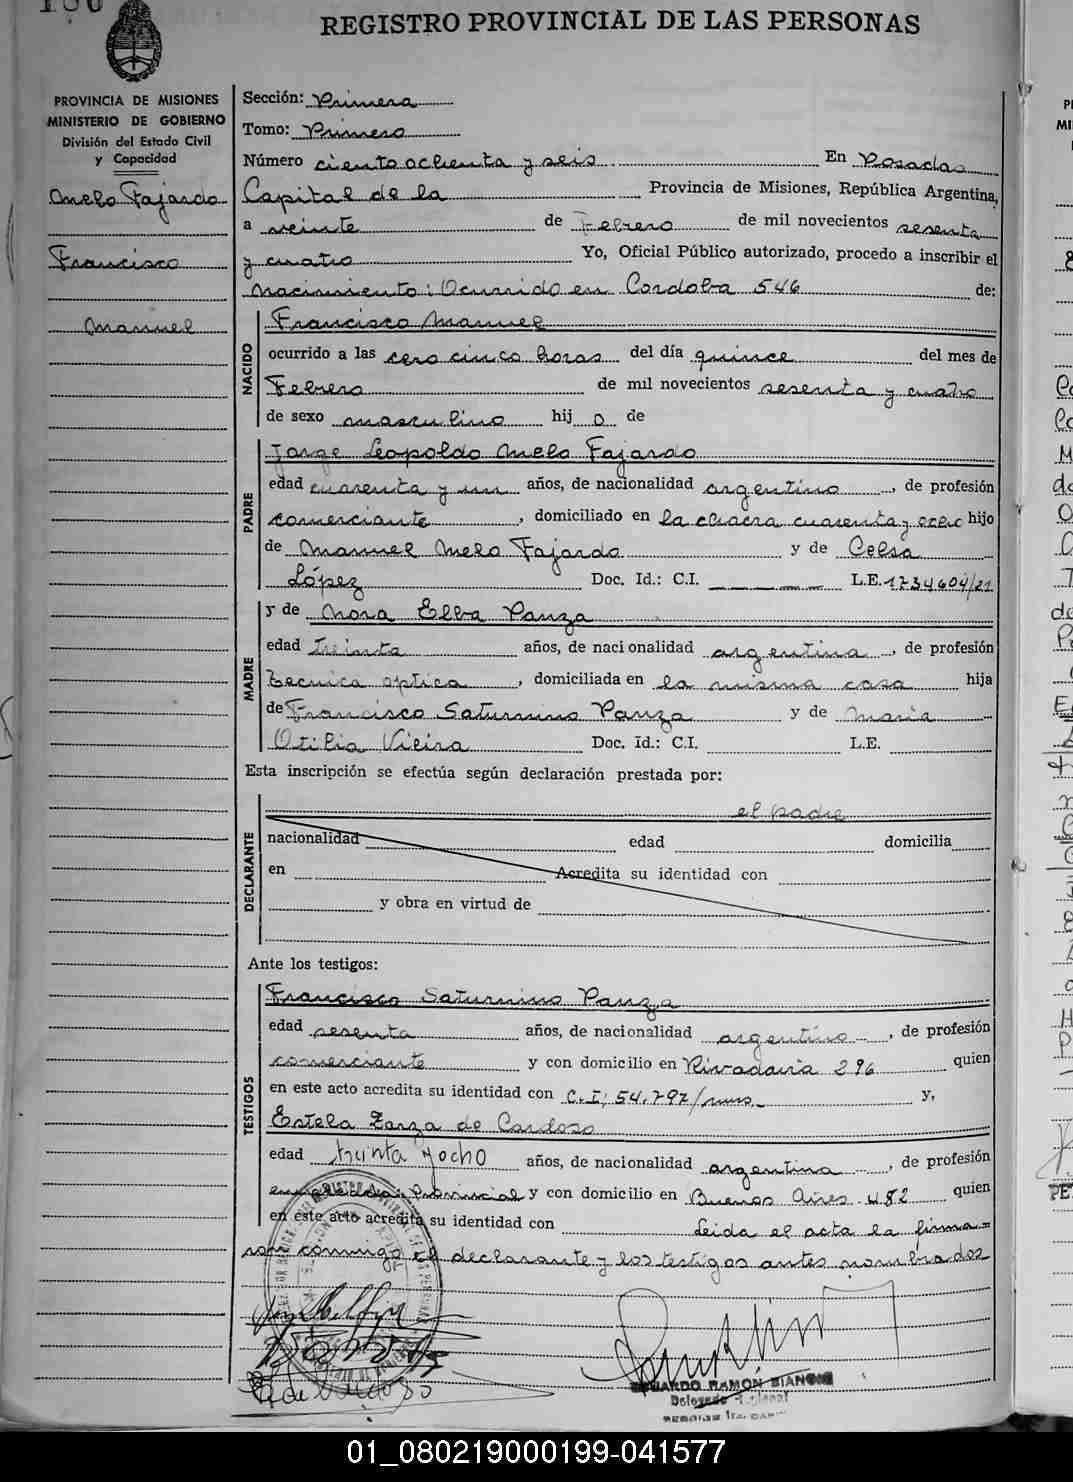 186
REGISTRO PROVINCIAL DE LAS PERSONAS
PROVINCIA DE MISIONES
MINISTERIO DE GOBIERNO
División del Estado Civil
y Capacidad
Melo Fajardo
Francisco
Manuel
Sección: Primera
Tomo: Primero
Número ciento ochenta y seis En Posadas
Capital de la Provincia de Misiones, República Argentina,
a veinte de Febrero de mil novecientos sesenta
y cuatro Yo, Oficial Público autorizado, procedo a inscribir el
nacimiento: Ocurrido en Cordoba 546 de:
NACIDO
Francisco Manuel
ocurrido a las cero cinco horas del día quince del mes de
Febrero de mil novecientos sesenta y cuatro
de sexo masculino hij o de
PADRE
Jorge Leopoldo Melo Fajardo
edad cuarenta y un años, de nacionalidad argentino, de profesión
comerciante, domiciliado en la chacra cuarenta y ocho hijo
de Manuel Melo Fajardo y de Celsa
López Doc. Id.: C.I. L.E. 1734604/21
MADRE
y de Nora Elba Panza
edad treinta años, de nacionalidad argentina, de profesión
tecnica optica, domiciliada en la misma casa hija
de Francisco Saturnino Panza y de Maria
Otilia Vieira Doc. Id.: C.I. L.E.
Esta inscripción se efectúa según declaración prestada por:
DECLARANTE
el padre
nacionalidad edad domicilia
en Acredita su identidad con
y obra en virtud de
Ante los testigos:
TESTIGOS
Francisco Saturnino Panza
edad sesenta años, de nacionalidad argentino, de profesión
comerciante y con domicilio en Rivadavia 296 quien
en este acto acredita su identidad con C.I: 54.797/mns. y,
Estela Zarza de Cardoso
edad treinta y ocho años, de nacionalidad argentina, de profesión
empleada Provincial y con domicilio en Buenos Aires 482 quien
en este acto acredita su identidad con Leida el acta la firma=
ron conmigo el declarante y los testigos antes nombrados
EDUARDO RAMÓN BIANCHI
Delegado
01_080219000199-041577